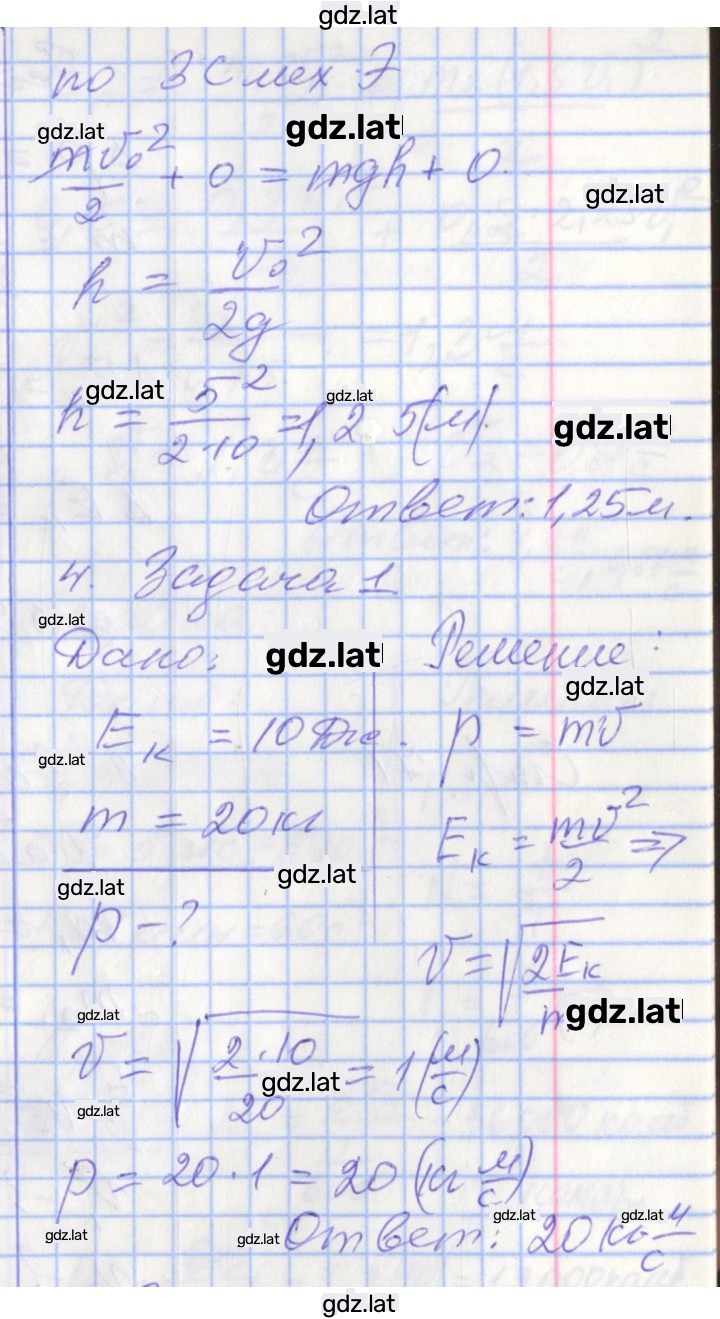 gdz.lat
по ЗСмех Э
gdz.lat gdz.lat
mv₀²/2 + 0 = mgh + 0.
gdz.lat
h = v₀²/2g
gdz.lat gdz.lat
h = 5²/2·10 = 1,25(м).
gdz.lat
Ответ: 1,25м.
4. Задача 1
gdz.lat
Дано: gdz.lat Решение:
gdz.lat
Eк = 10Дж. p = mv
gdz.lat
m = 20кг Eк = mv²/2 ⇒
gdz.lat gdz.lat
p - ?
v = √2Eк/m
gdz.lat gdz.lat
v = √2·10/20 = 1(м/с)
gdz.lat gdz.lat
p = 20·1 = 20(кг м/с)
gdz.lat gdz.lat
gdz.lat gdz.lat
Ответ: 20кг м/с
gdz.lat